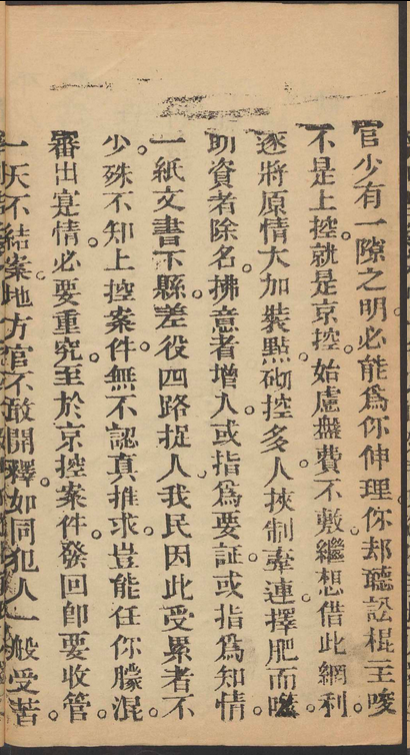 官少有一隙之明必能爲你伸理。你却聽訟棍主唆
不是上控就是京控。始慮盤費不敷。繼想借此網利。
遂將原情大加裝點。砌控多人。挾制牽連。擇肥而噬。
助資者除名。拂意者增人。或指爲要証。或指爲知情。
一紙文書下縣。差役四路捉人。我民因此受累者不
少。殊不知上控案件。無不認真推求。豈能任你朦混。
審出寔情。必要重究。至於京控案件。發回卽要收管。
一天不結案。地方官不敢開釋。如同犯人一般受苦。